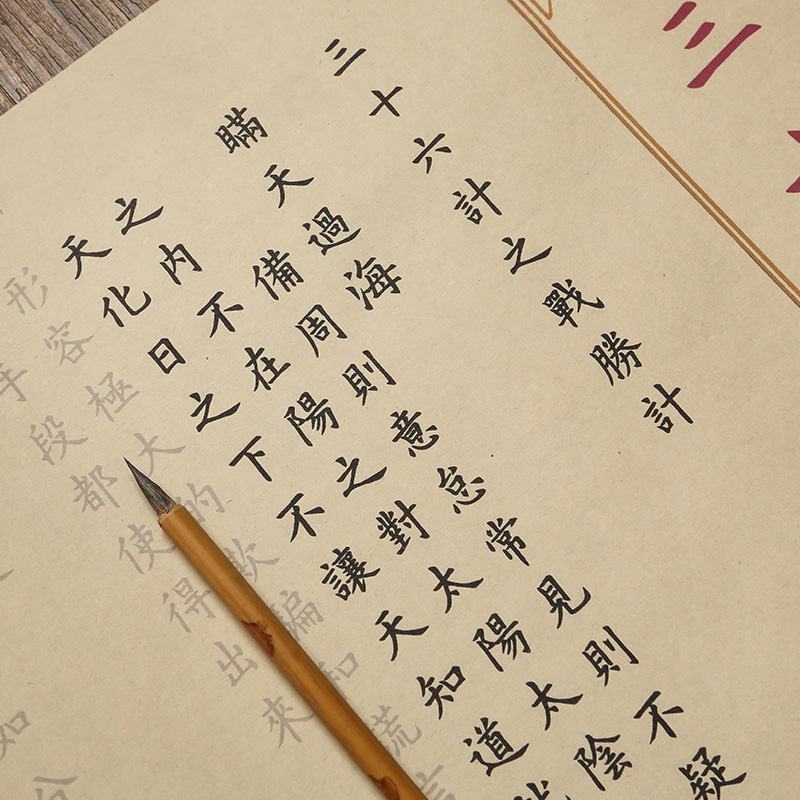 三
三十六計之戰勝計
瞞天過海
備周則意怠常見則不疑
之內不在陽之對太陽太陰
天化日之下不讓天知道
形容極大的欺騙和謊言
手段都使得出來
如